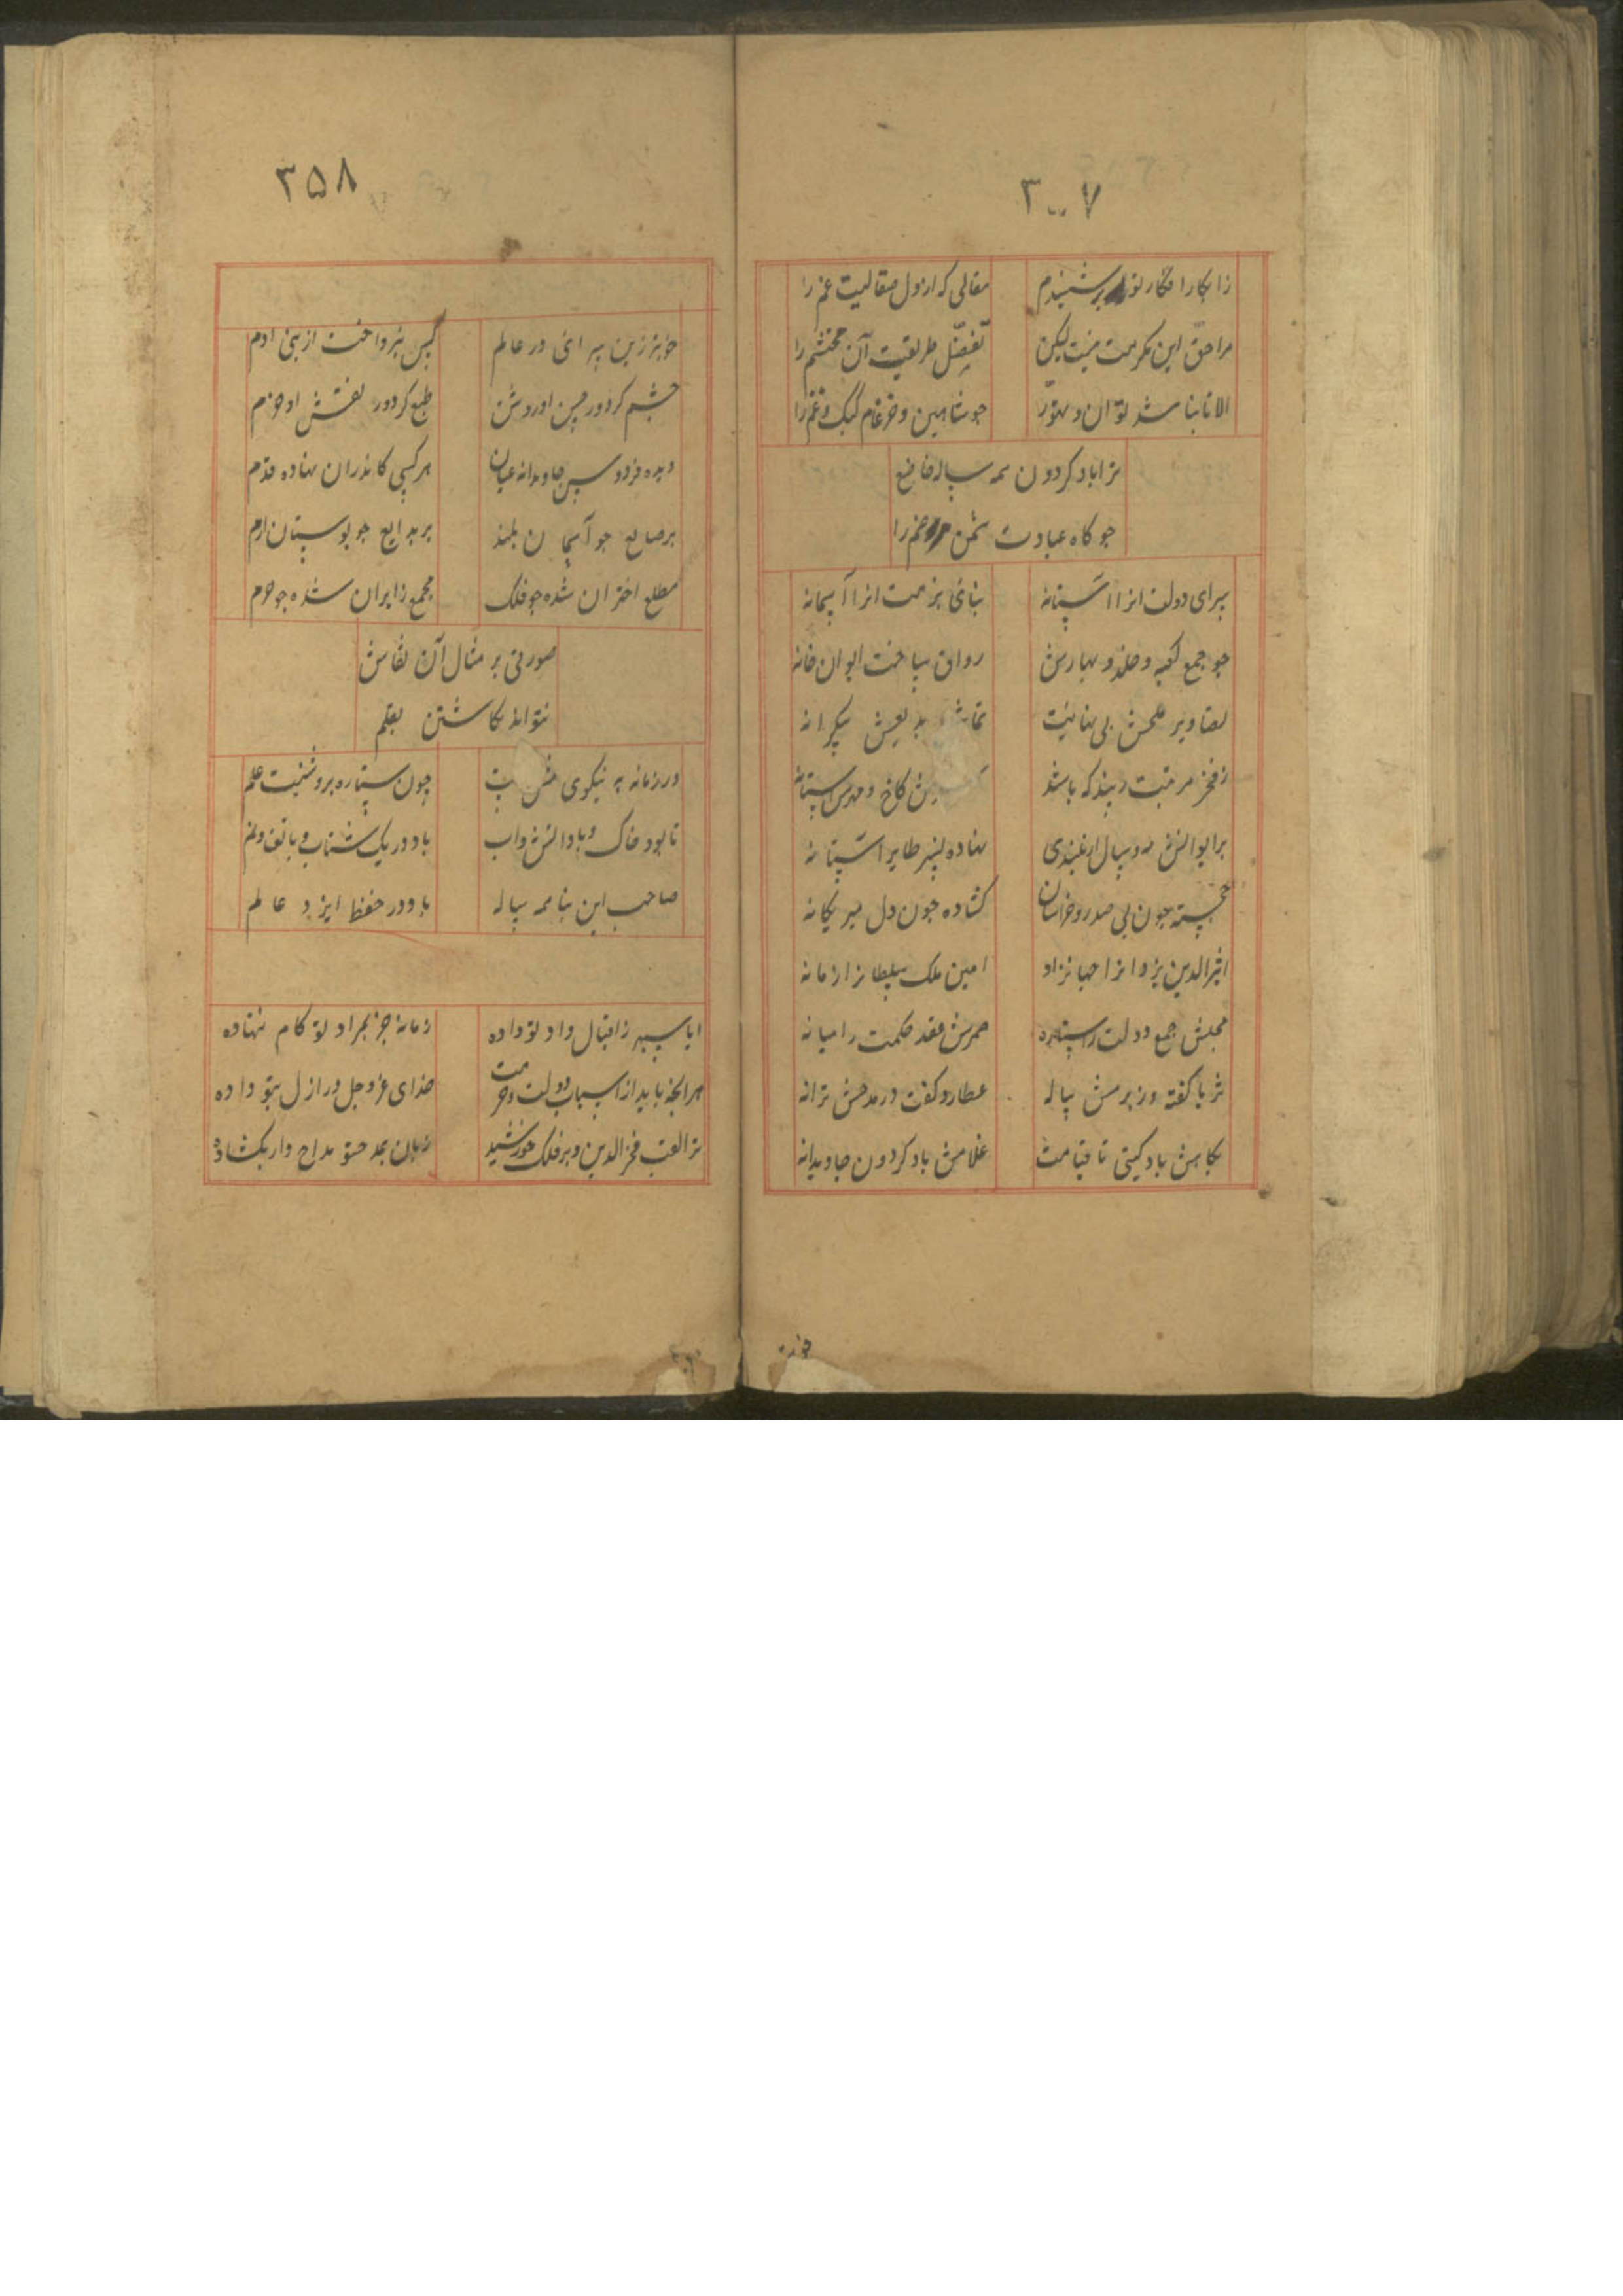 ۳۰۰۷
زابکار افکار تو بر شنیدم مقالی که از دل صقالیت غم را
مرا حق این مکرمت نیست لیکن تفضل طریقیت آن محتشم را
الا تا بنا شد توان و تهور چو شاهین و ضرغام کبک و غنم را
ترا باد کردون همه ساله خاضع
چو کاه عبادت شمن صنم را
سرای دولت انرا آستانه بنائی بزمت انرا آسمانه
چو جمع کعبه و خلد و بهارش رواق ساخت ایوان خانه
تصاویر علمش بی نهایت بدیعش بیکرانه
ز فخر مرتبت زیبد که باشد کاخ و
بر ایوانش دو سال از بلندی نهاده نسر طایر آشیانه
خجسته چون پی صدر خراسان کشاده چون دل میر یکانه
اثیر الدین یزدانرا جهانزاد امین ملک سلطانرا زمانه
مجلس جمع دولت را ستاره عقد حکمت را میانه
ثریا کفته در بزمش پیاله عطارد کفت در مدحش ترانه
بکامش باد کیتی تا قیامت غلامش باد کردون جاویدانه
۳۵۸
خوبتر زین سرائی در عالم کس نپرداخت از بنی ادم
چشم کردد ز حسن او روشن طبع کردد ز نقش او خرم
دیده فردوس جاودانه عیان هر کسی کاندران نهاده قدم
بر صنایع چو آسمان بلند بر بدایع چو بوستان ارم
مطلع اختران شده چو فلک مجمع زایران شده چو حرم
صورتی بر مثال آن نقاش
نتواند نکاشتن بقلم
در زمانه به نیکوی چون ستاره بروشنیت علم
تا بود خاک و باد و اتش و اب باد در یک شتاب و با تف و نم
صاحب این بنا همه ساله بادو در حفظ ایزد عالم
ایا سپهر ز اقبال داد تو داده زمانه جز بمراد تو کام ننهاده
هر انچه باید از اسباب دولت و حرمت خدای عز و جل در ازل بتو داده
ترا لقب فخر الدین و بر فلک خورشید زبان بمدح تو مداح وار بکشاده